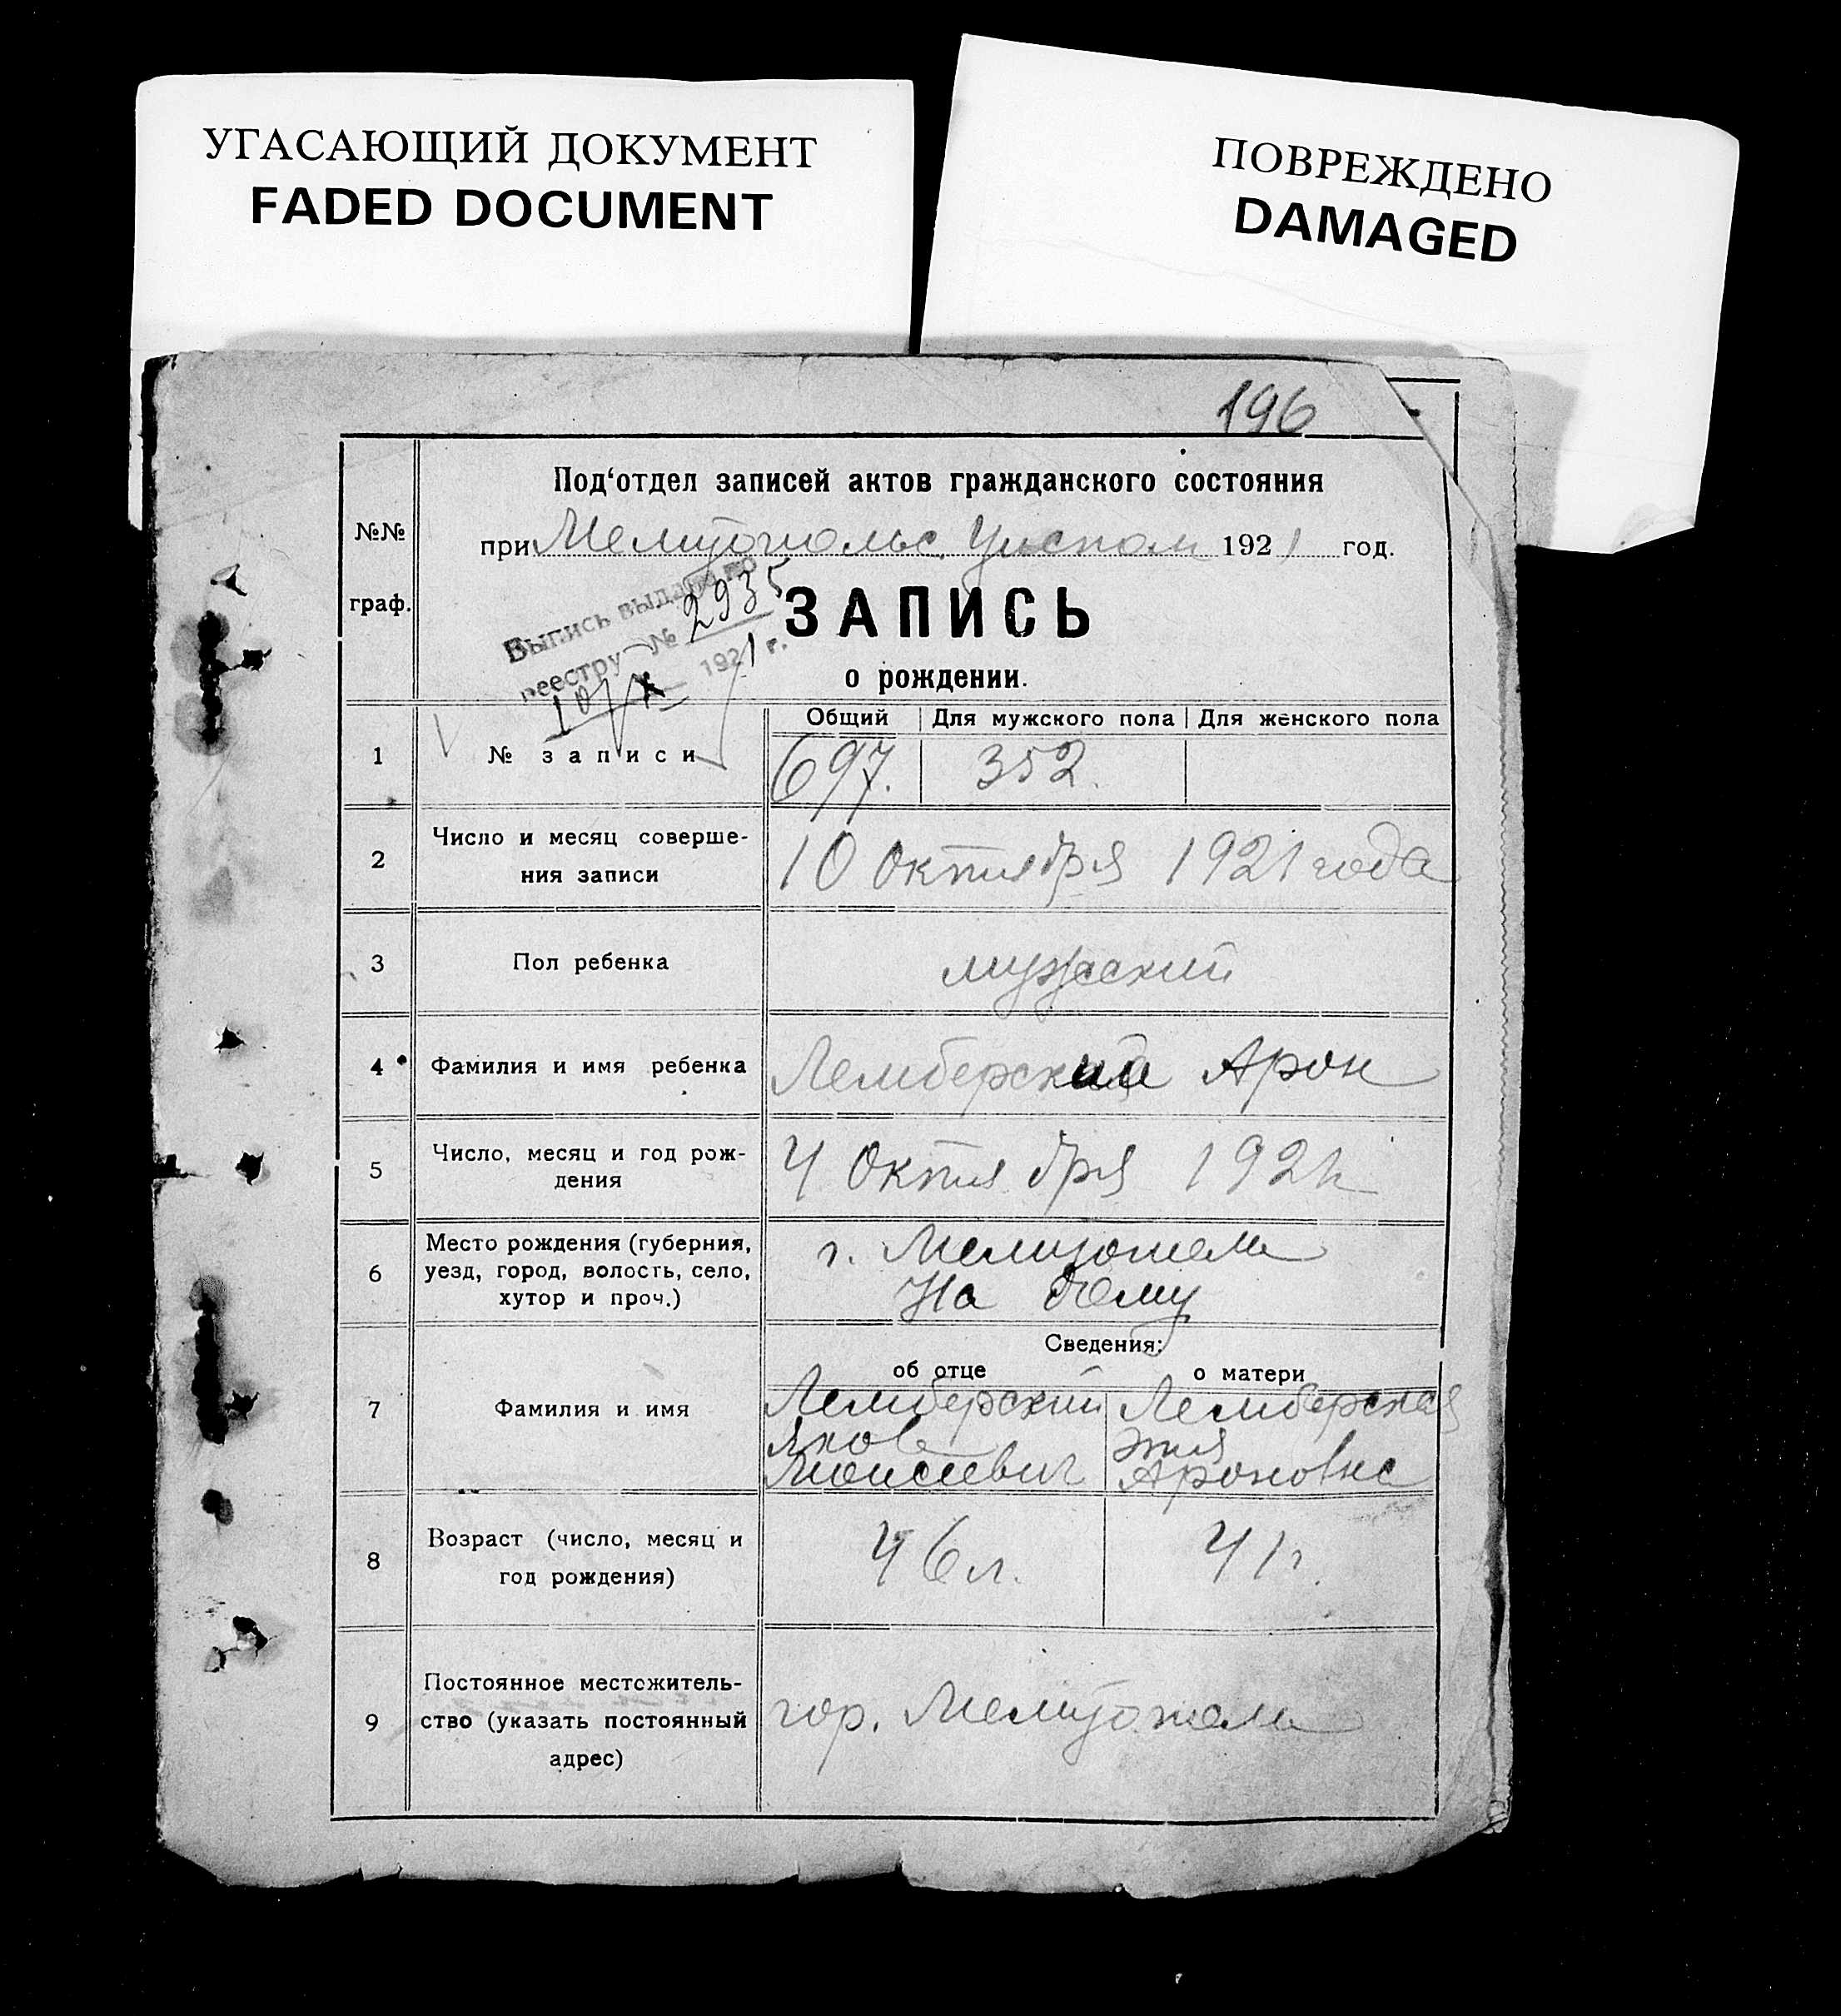 УГАСАЮЩИЙ ДОКУМЕНТ
FADED DOCUMENT
ПОВРЕЖДЕНО
DAMAGED
196
Под'отдел записей актов гражданского состояния
№№ граф.
при Мелитопольс. Уиспом 1921 год.
Выпись выдана по
реестру № 2935
10/X 1921 г.
ЗАПИСЬ
о рождении.
Общий Для мужского пола Для женского пола
1 № записи 697. 352.
2 Число и месяц соверше-
ния записи
10 октября 1921 года
3 Пол ребенка мужской
4 Фамилия и имя ребенка Лемберский Арон
5 Число, месяц и год рож-
дения
4 октября 1921 г.
6 Место рождения (губерния,
уезд, город, волость, село,
хутор и проч.)
г. Мелитополь
На дому
Сведения:
об отце о матери
7 Фамилия и имя
Лемберский
Яков
Моисеевич
Лемберская
Ароновна
8 Возраст (число, месяц и
год рождения)
46 л. 41 г.
9 Постоянное местожитель-
ство (указать постоянный
адрес)
гор. Мелитополь